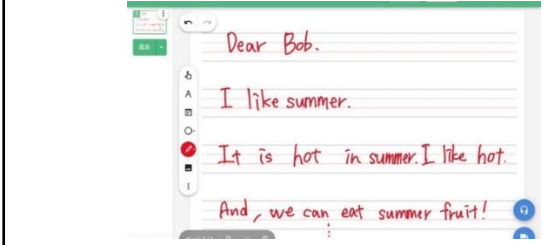 Dear Bob.
I like summer.
It is hot in summer. I like hot.
And, we can eat summer fruit!